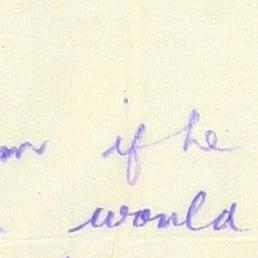 if he
would